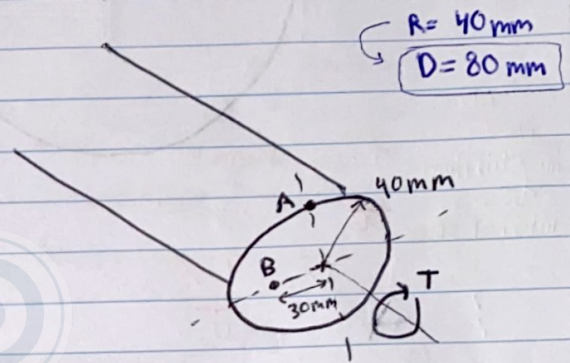 R= 40mm
D= 80mm
40mm
A
B
30mm
T